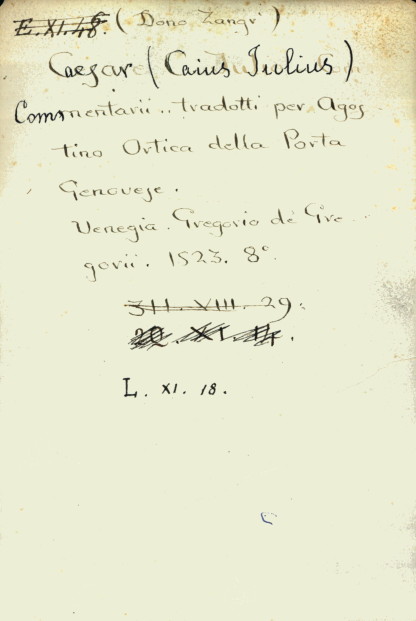 E. XI. 48. (Dono Zangri)
Caesar (Caius Iulius)
Commentarii .. tradotti per Agos
tino Ortica della Porta
Genovese.
Venegia. Gregorio de Gre
gorii. 1523. 8°.
311. VIII. 29.
20. XI. 
L. XI. 18.